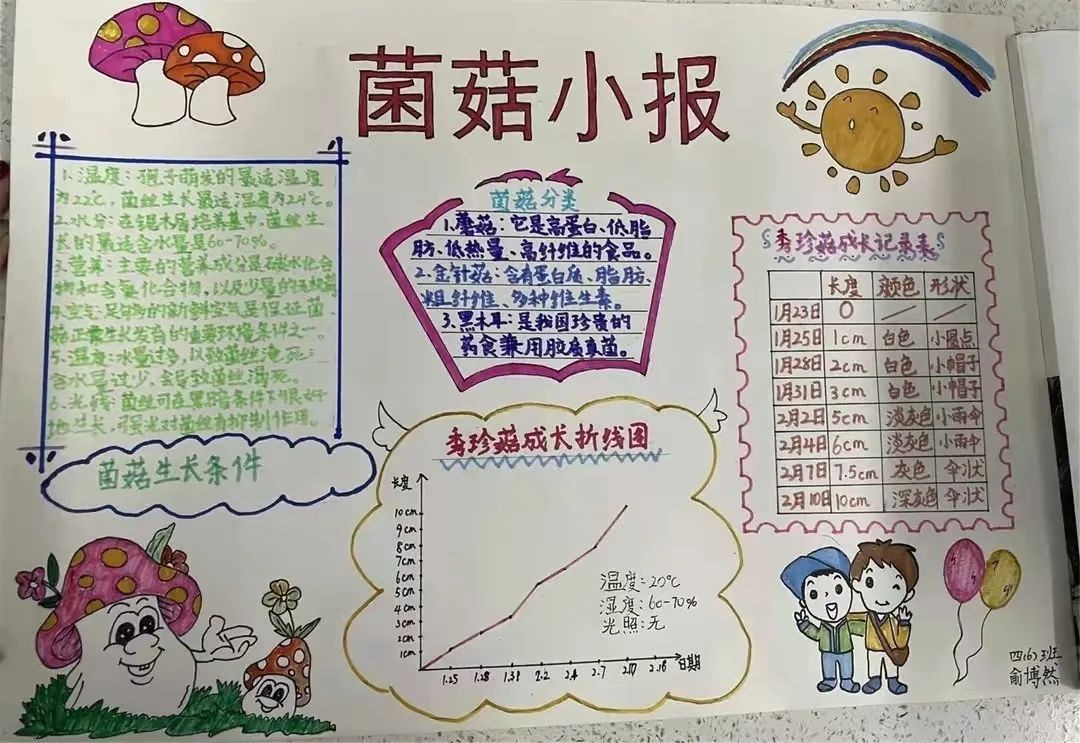 菌菇小报
1.温度：孢子萌发的最适温度
为22℃，菌丝生长最适温度为24℃。
2.水分：在锯木屑培养基中，菌丝生
长的最适含水量是60-70%。
3.营养：主要的营养成分是碳水化合
物和含氮化合物，以及少量的无机盐
4.空气：足够的新鲜空气是保证菌
菇正常生长发育的重要环境条件之一。
5.湿度：水量过多，以致菌丝淹死；
含水量过少，会导致菌丝渴死。
6.光线：菌丝可在黑暗条件下很好
地生长，强光对菌丝有抑制作用。
菌菇生长条件
菌菇分类
1.蘑菇：它是高蛋白、低脂
肪、低热量、高纤维的食品。
2.金针菇：含有蛋白质、脂肪、
粗纤维、多种维生素。
3.黑木耳：是我国珍贵的
药食兼用胶质真菌。
秀珍菇成长记录表
长度 颜色 形状
1月23日 0 — —
1月25日 1cm 白色 小圆点
1月28日 2cm 白色 小帽子
1月31日 3cm 白色 小帽子
2月2日 5cm 淡灰色 小雨伞
2月4日 6cm 淡灰色 小雨伞
2月7日 7.5cm 灰色 伞状
2月10日 10cm 深灰色 伞状
秀珍菇成长折线图
长度
10cm
9cm
8cm
7cm
6cm
5cm
4cm
3cm
2cm
1cm
1.25 1.28 1.31 2.2 2.4 2.7 日期
温度：20℃
湿度：60-70%
光照：无
四(6)班
俞博然